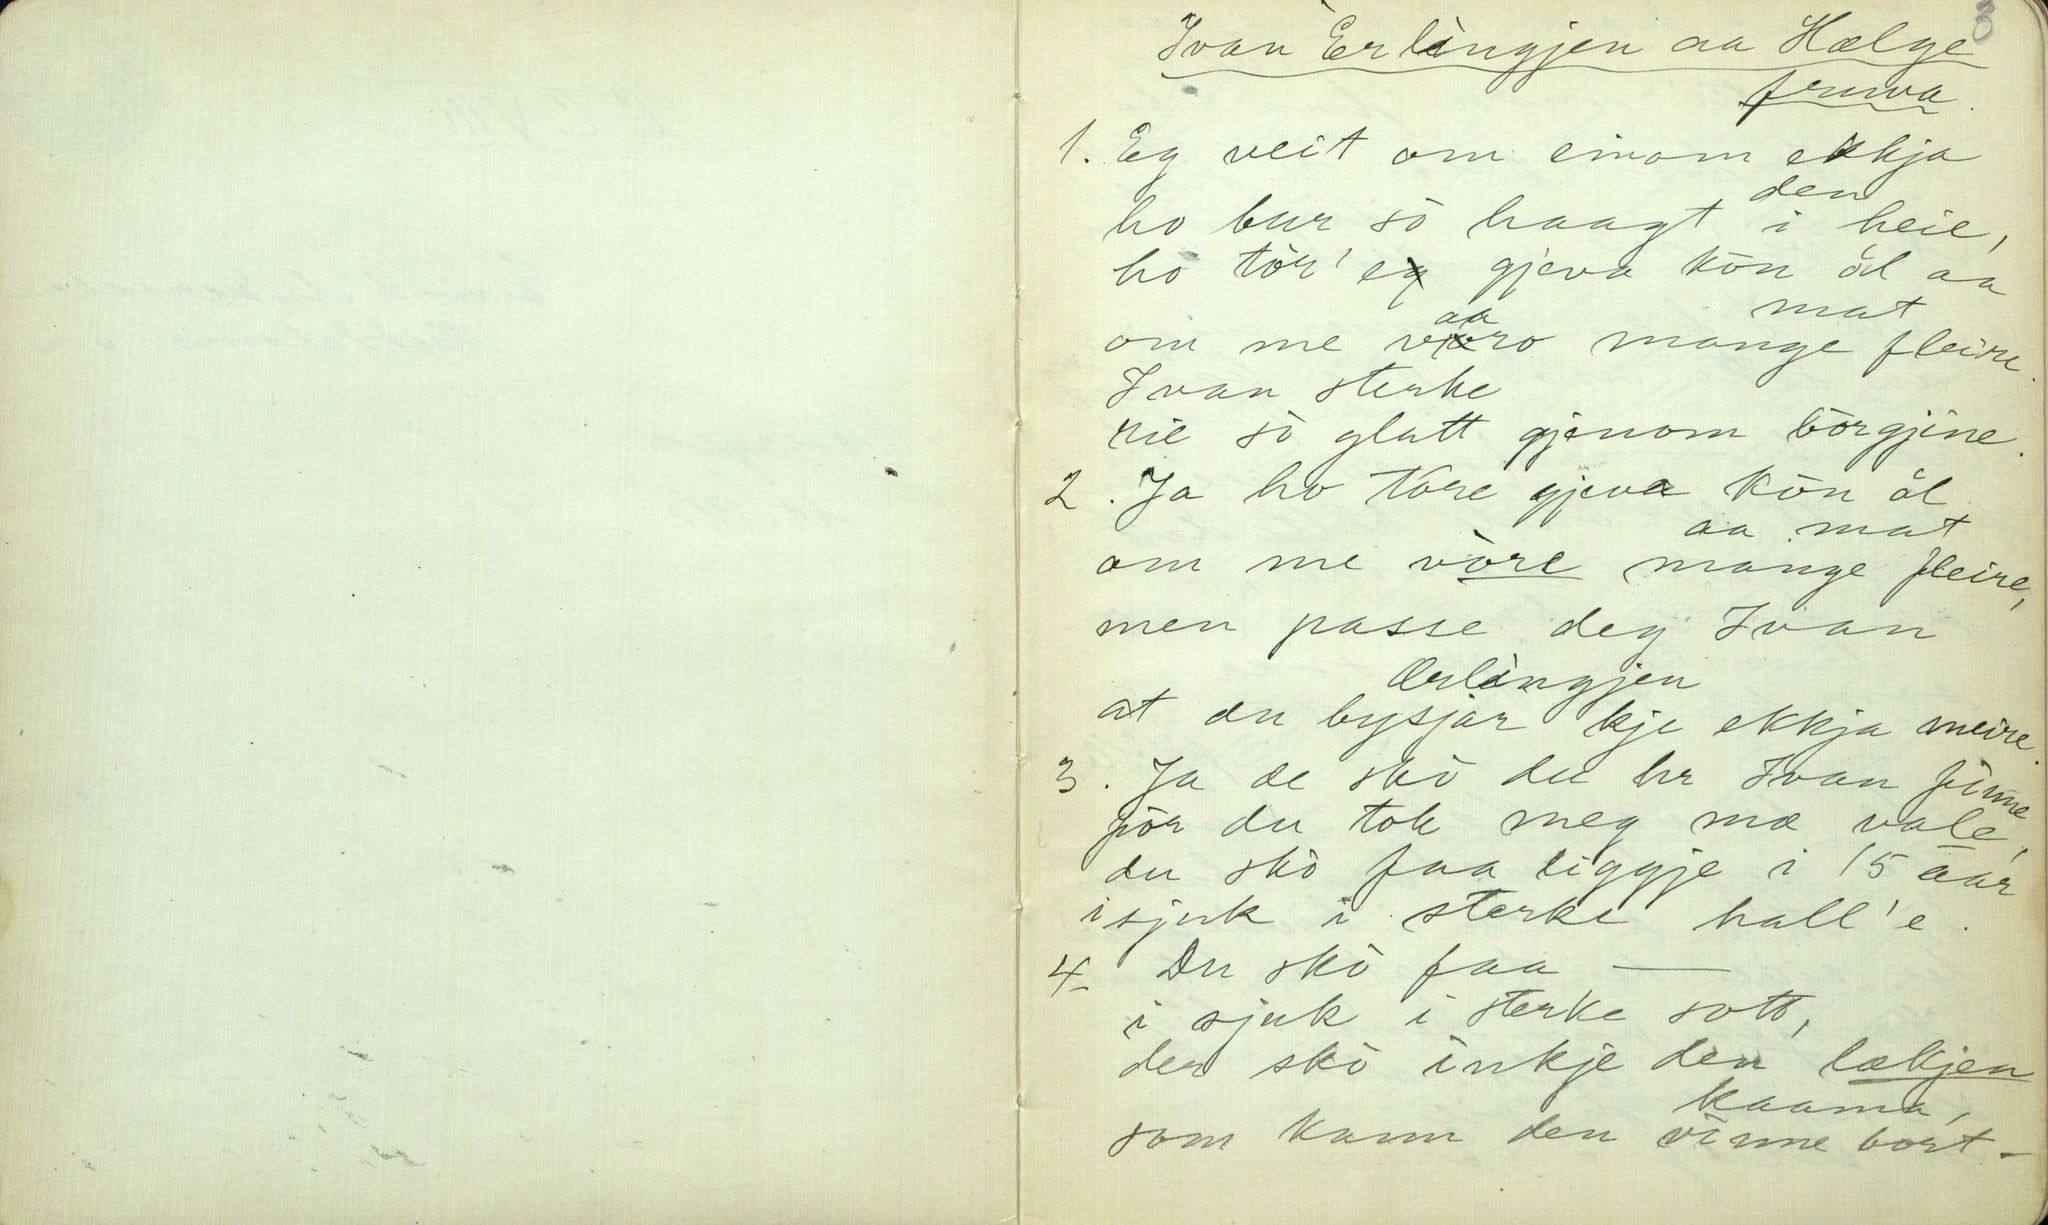 8
Ivan Erlingjen aa Hælge
fruva.
1. Eg veit om einom ekkja
ho bur sò haagt i den heie,
ho tör' eg gjeva kōn öl aa mat
om me vaaro mange fleire.
Ivan sterke
rie sò glatt gjenom börgjine.
2. Ja ho töre gjeva kōn öl
aa mat
om me vòre mange fleire,
men passe deg Ivan
Ærlingjen
at du bysjar kje ekkja meire.
3. Ja de skò du hr Ivan finne
för du tok meg mæ vale,
du skò faa liggje i 15 aar
i sjuk i sterke hall'e.
4. Du skò faa —
i sjuk i sterke sott,
der skò inkje den lækjen
kaama,
som kann den vinne bort –